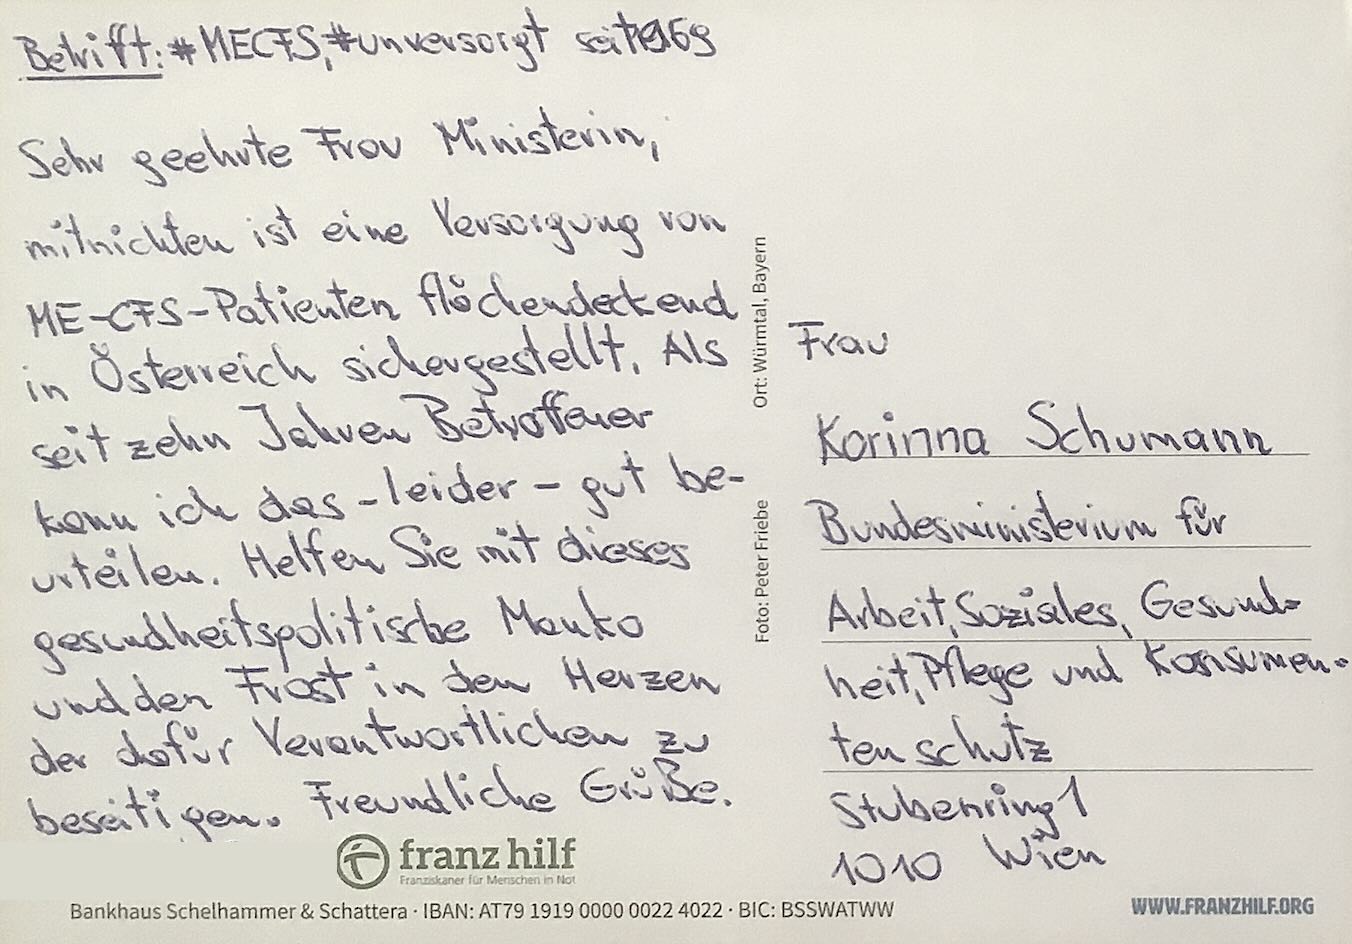 Betrifft: #MECFS, #unversorgt seit 1969
Sehr geehrte Frau Ministerin,
mitnichten ist eine Versorgung von
ME-CFS-Patienten flächendeckend
in Österreich sichergestellt. Als
seit zehn Jahren Betroffener
kann ich das - leider - gut be-
urteilen. Helfen Sie mit dieses
gesundheitspolitische Manko
und den Frost in den Herzen
der dafür Verantwortlichen zu
beseitigen. Freundliche Grüße.
Ort: Würmtal, Bayern
Foto: Peter Friebe
Frau
Korinna Schumann
Bundesministerium für
Arbeit, Soziales, Gesund-
heit, Pflege und Konsumen-
tenschutz
Stubenring 1
1010 Wien
franz hilf
Franziskaner für Menschen in Not
Bankhaus Schelhammer & Schattera · IBAN: AT79 1919 0000 0022 4022 · BIC: BSSWATWW
WWW.FRANZHILF.ORG